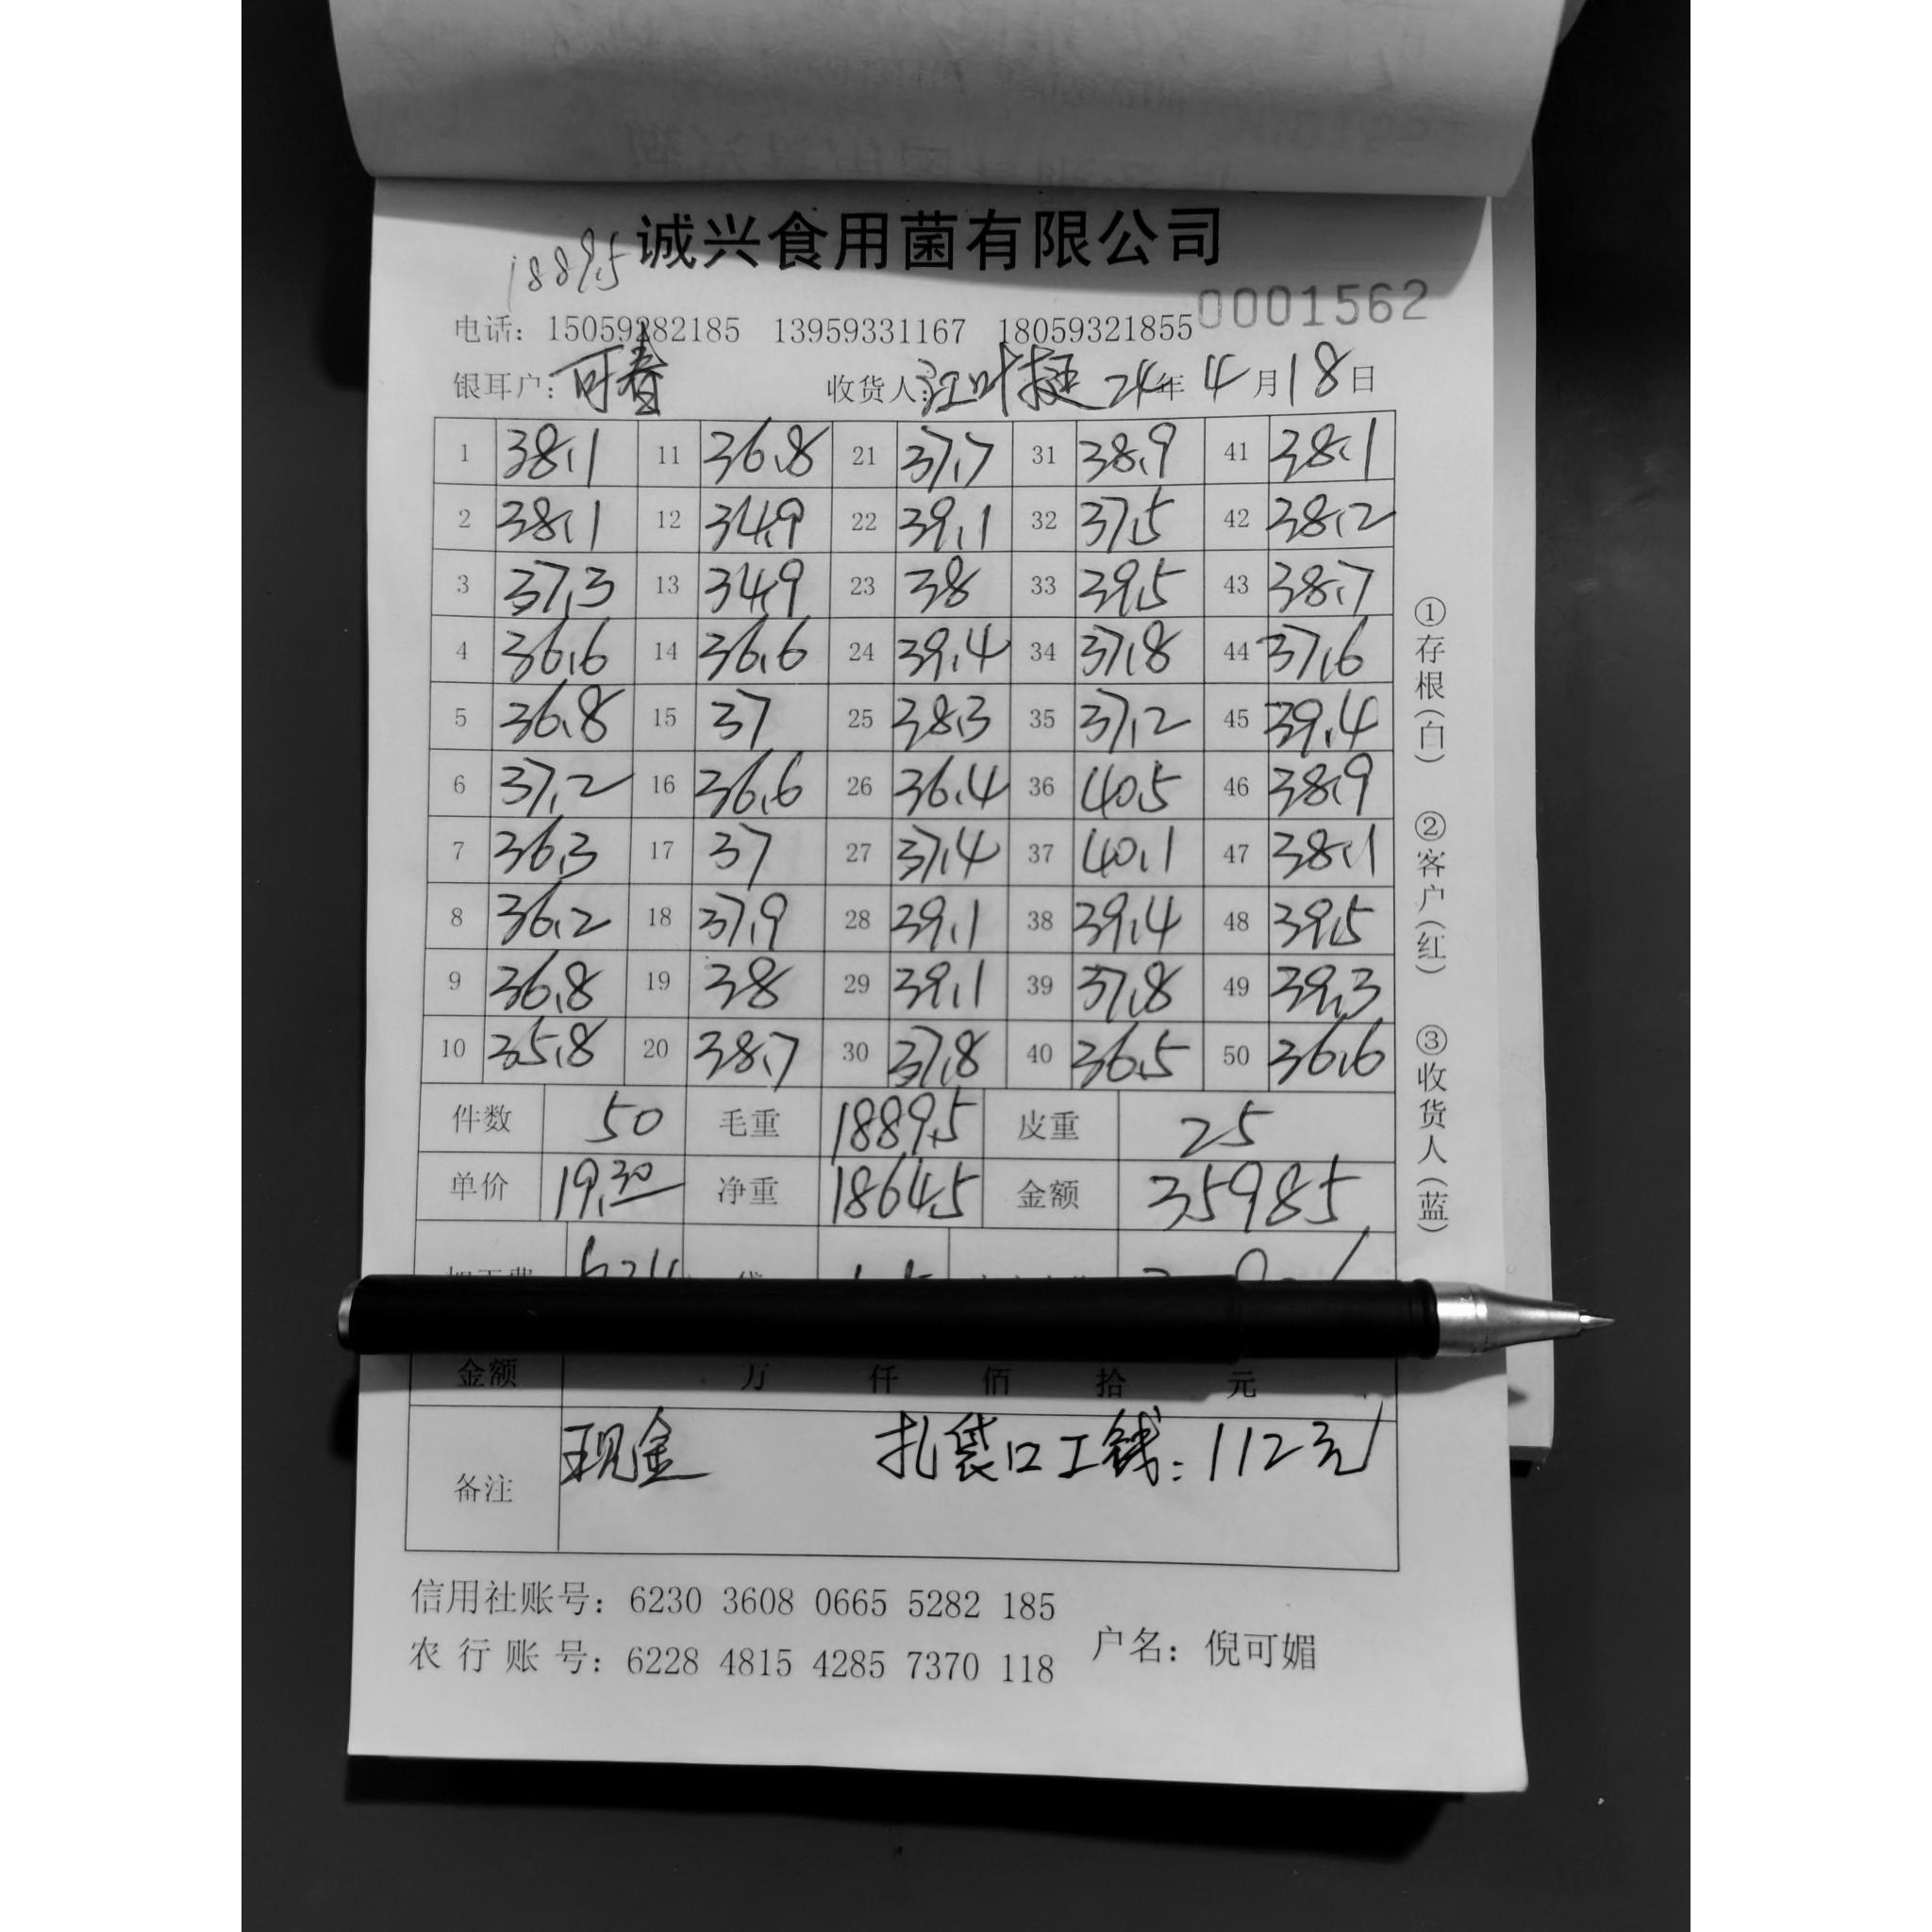 诚兴食用菌有限公司
1889.5
0001562
电话：15059282185 13959331167 18059321855
银耳户：可春 收货人：江叶捷 24年4月18日
1 38.1 11 36.8 21 37.7 31 38.9 41 38.1
2 38.1 12 34.9 22 39.1 32 37.5 42 38.2
3 37.3 13 34.9 23 38 33 39.5 43 38.7
4 36.6 14 36.6 24 39.4 34 37.8 44 37.6
5 36.8 15 37 25 38.3 35 37.2 45 39.4
6 37.2 16 36.6 26 36.4 36 40.5 46 38.9
7 36.3 17 37 27 37.4 37 40.1 47 38.1
8 36.2 18 37.9 28 39.1 38 39.4 48 39.5
9 36.8 19 38 29 39.1 39 37.8 49 39.3
10 35.8 20 38.7 30 37.8 40 36.5 50 36.6
件数 50 毛重 1889.5 皮重 25
单价 19.30 净重 1864.5 金额 35985
金额 万 仟 佰 拾 元
备注 现金 扎袋口工钱：112元
①存根（白） ②客户（红） ③收货人（蓝）
信用社账号：6230 3608 0665 5282 185
农行账号：6228 4815 4285 7370 118
户名：倪可媚